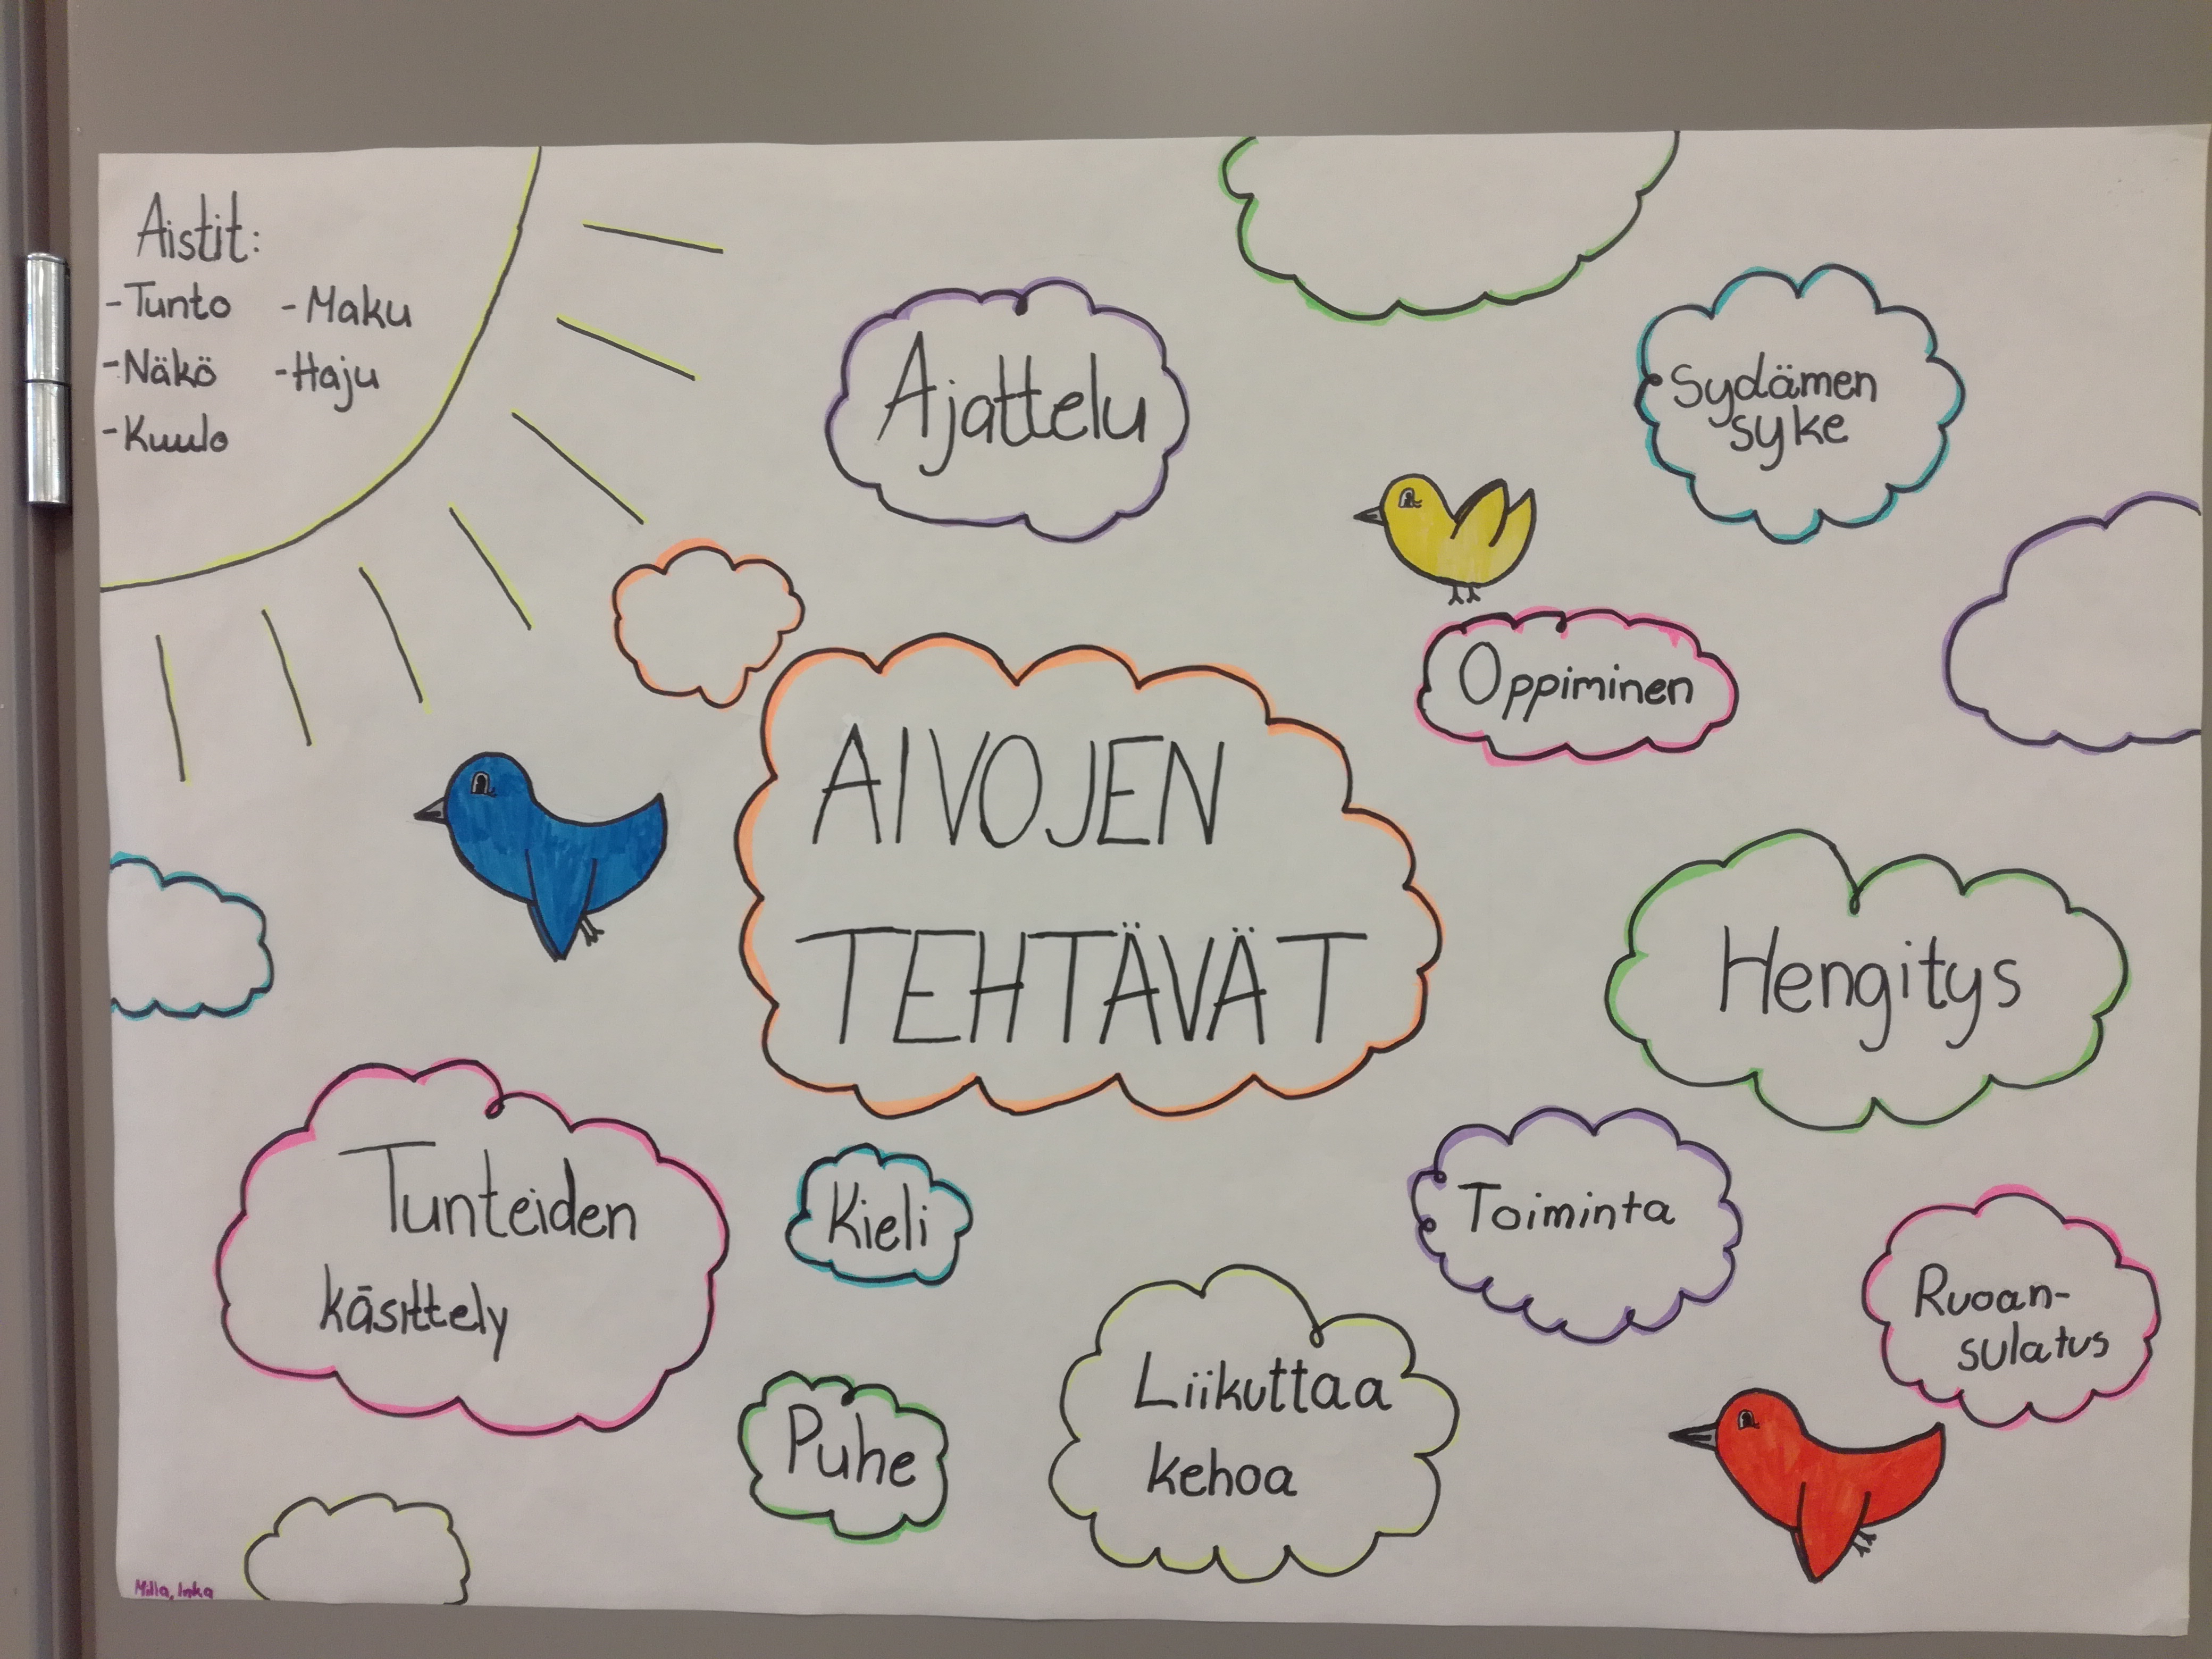 Aistit:
-Tunto -Maku
-Näkö -Haju
-Kuulo
Ajattelu
Sydämen
syke
Oppiminen
AIVOJEN
TEHTÄVÄT
Hengitys
Tunteiden
käsittely
Kieli
Toiminta
Ruoan-
sulatus
Puhe
Liikuttaa
kehoa
Milla, Inka